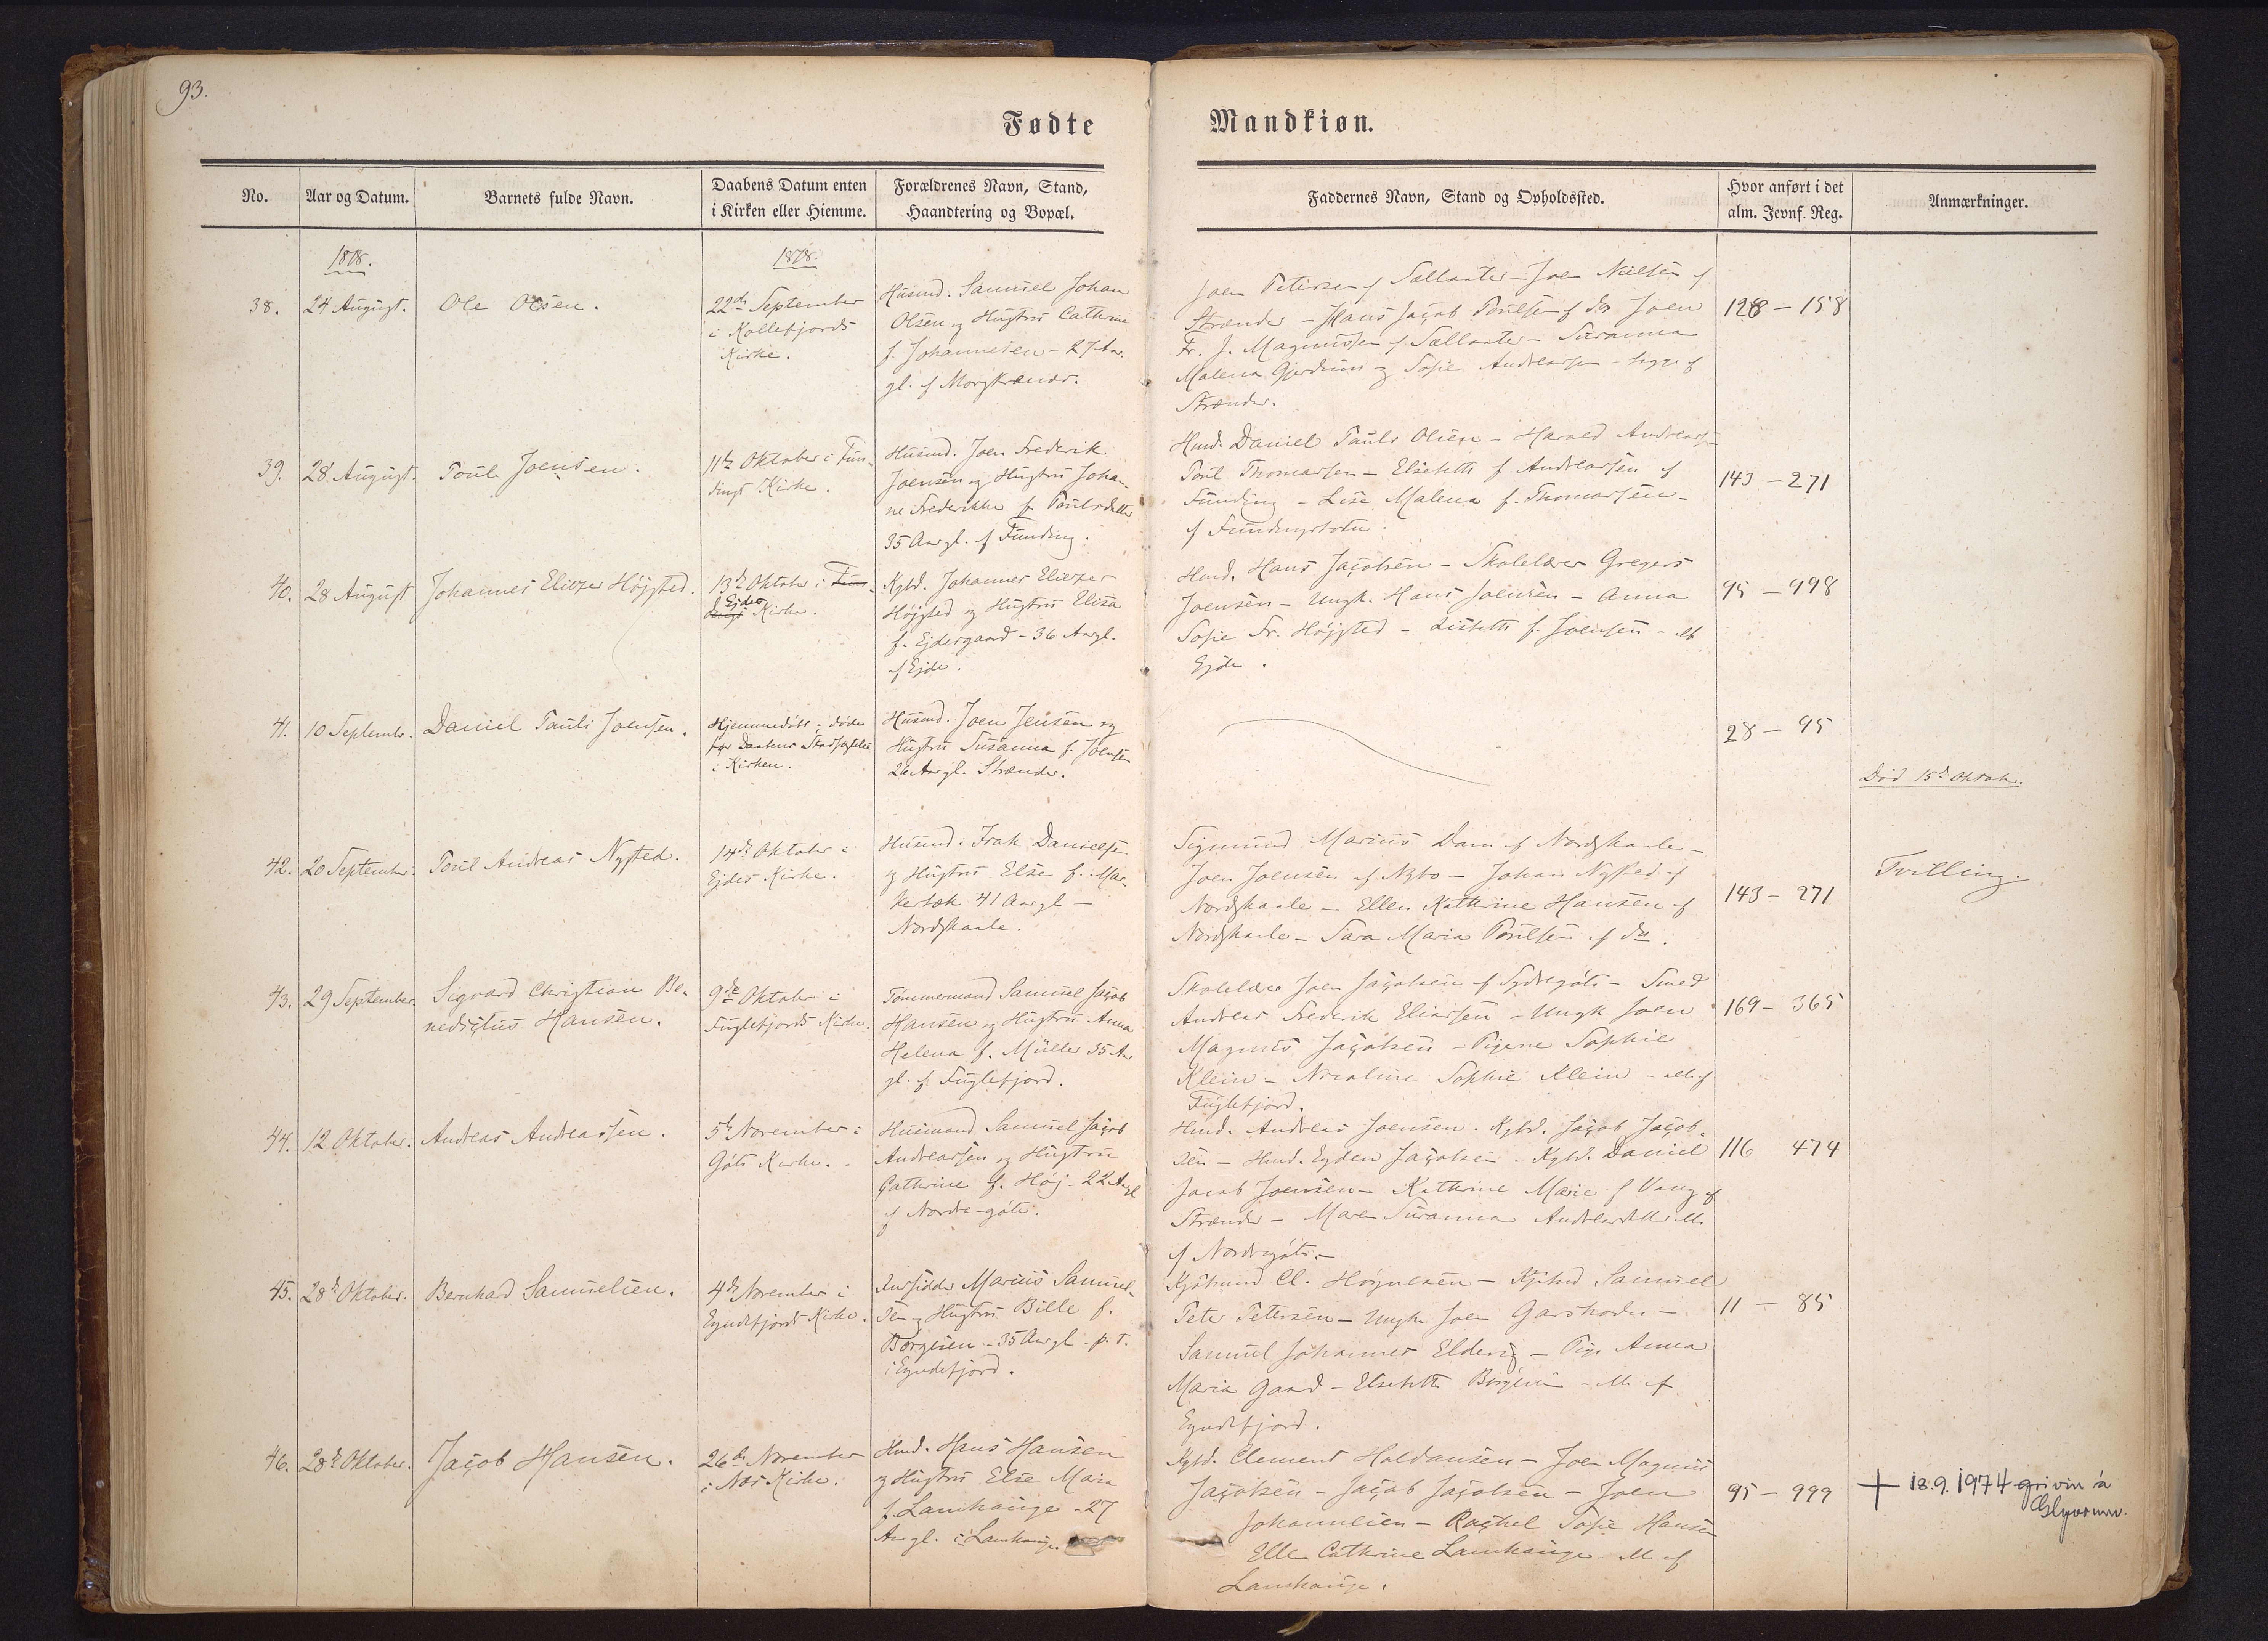 93.
Fødte
Mandkiøn.
No.
Aar og Datum.
Barnets fulde Navn.
Daabens Datum enten
i Kirken eller Hiemme.
Forældrenes Navn, Stand,
Haandtering og Bopæl.
Faddernes Navn, Stand og Opholdssted.
Hvor anført i det
alm. Jevnf. Reg.
Anmærkninger.
38.
24 August.
Ole Olsen.
22de September
i Kollefjords
Kirke.
Husmd. Samuel Johan
Olsen og Hustru Cathrine
f. Johannesen - 27 Aar
gl. af
Joen Petersen af Sællæter - Joen Nielsen af
Strænder - Hans Jacob Poulsen af Do Joen
Fr. J. Magnussen af Sællæter - Susanna
Malena og Sofie Andreassen
Strænder.
128 - 158
39.
28 August.
Poul Joensen.
11te Oktober i Fun-
dings Kirke.
Husmd. Joen Frederik
Joensen og Hustru Johan-
ne Frederikke f. Poulsdatter
35 Aar gl. af Funding.
Husmd. Daniel Pauli Olsen - Harald Andreassen
Poul Thomassen - Elsebeth f. Andreassen af
Funding - Lise Malena f. Thomassen -
af Fundingsbotn.
143 - 271
40.
28 August
Johannes Eliezer Højgsted.
13de Oktober i Fun-
dings Ejdes Kirke.
Kgbd. Johannes Eliezer
Højgsted og Hustru Elisa
f. Ejdesgaard - 36 Aar gl.
af Ejde.
Husmd. Hans Jacobsen - Skolelærer Gregers
Joensen - Ungk. Hans Joensen - Anna
Sofie Fr. Højgsted - Lisbeth f. Joensen - af
Ejde.
95 - 998
41.
10 Septembr.
Daniel Pauli Joensen.
Hjemmedøbt; døde
før Daabens Stadfæstelse
i Kirken.
Husmd. Joen Jensen og
Hustru Susanna f. Joensen
26 Aar gl. Strænder.
28 - 95
Død 15de Oktober.
42.
20 September.
Poul Andreas Nysted.
14de Oktober i
Ejdes Kirke.
Husmd. Isak Danielsen
og Hustru Else f. Mar-
41 Aar gl -
Nordskaale.
Sigmund Marius Dam af Nordskaale -
Joen Joensen af Nybo - Johan Nysted af
Nordskaale - Ellen Kathrine Hansen af
Nordskaale - Sara Maria Poulsen af Do.
143 - 271
Tvilling.
43.
29 September.
Sigvard Christian Be-
nedictus Hansen.
9de Oktober i
Fuglefjords Kirke.
Tømmermand Samuel Jacob
Hansen og Hustru Anna
Helena f. Müller 35 Aar
gl. af Fuglefjord.
Skolelærer Joen Jacobsen af Sydregøte - Smed
Andreas Frederik Eliassen - Ungk Joen
Magnus Jacobsen - Pigerne Sophie
Klein - Nicoline Sophie Klein - alle af
Fuglefjord.
169 - 365
44.
12 Oktober.
Andreas Andreassen.
5te November i
Gøte Kirke.
Husmand Samuel Jacob
Andreassen og Hustru
Cathrine f. Høj - 22 Aar gl
af Nordre-gøte.
Husmd. Andreas Joensen. Kgbd. Jacob Jacob-
sen - Husmd. Jacobsen - Kgbd. Daniel
Jacob Joensen - Kathrine Marie f. Vang af
Strænder - Maren Susanna Andreasdatter alle
af Nordregøte. -
116 474
45.
28de Oktober.
Bernhard Samuelsen.
4de November i
Eyndefjords Kirke.
Marius Samuel-
sen og Hustru Bille f.
Børgesen - 35 Aar gl - p. t.
i Eyndefjord.
Cl. Høgnesen - Samuel
Peter Petersen - Ungk Joen
Samuel Johannes Eldevig - Pige Anna
Maria Gaard - Elsebeth Børgesen - alle af
Eyndefjord.
11 - 85
46.
28de Oktober.
Jacob Hansen.
26de November
i Næs Kirke.
Husmd. Hans Hansen
og Hustru Else Maria
f. Lamhauge - 27
Aar gl. i Lamhauge.
Kgbd. Clement Haldansen - Joen Magnus
Jacobsen - Jacob Jacobsen - Joen
Johannesen - Rachel Sofie Hansen
Ellen Cathrine Lamhauge alle af
Lamhauge.
95 - 999
+ 18.9.1974 grivin á
Glyvrum.
1878.
1878.